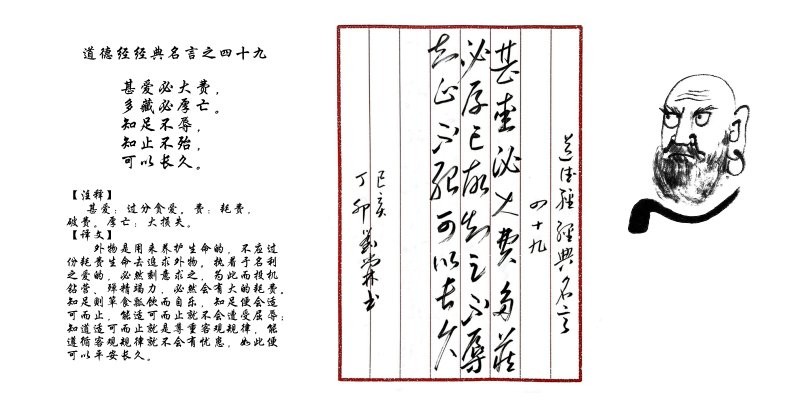 道德经经典名言之四十九
甚爱必大费，
多藏必厚亡。
知足不辱，
知止不殆，
可以长久。
【注释】
甚爱：过分贪爱。费：耗费，
破费。厚亡：大损失。
【译文】
外物是用来养护生命的，不应过
份耗费生命去追求外物，执着于名利
之爱的，必然刻意求之，为此而投机
钻营，殚精竭力，必然会有大的耗费。
知足则草食瓢饮而自乐，知足便会适
可而止，能适可而止就不会遭受屈辱；
知道适可而止就是尊重客观规律，能
遵循客观规律就不会有忧患，如此便
可以平安长久。
道德經經典名言
四十九
甚爱必大费多藏
必厚亡故知足不辱
知止不殆可以长久
己亥
丁卯